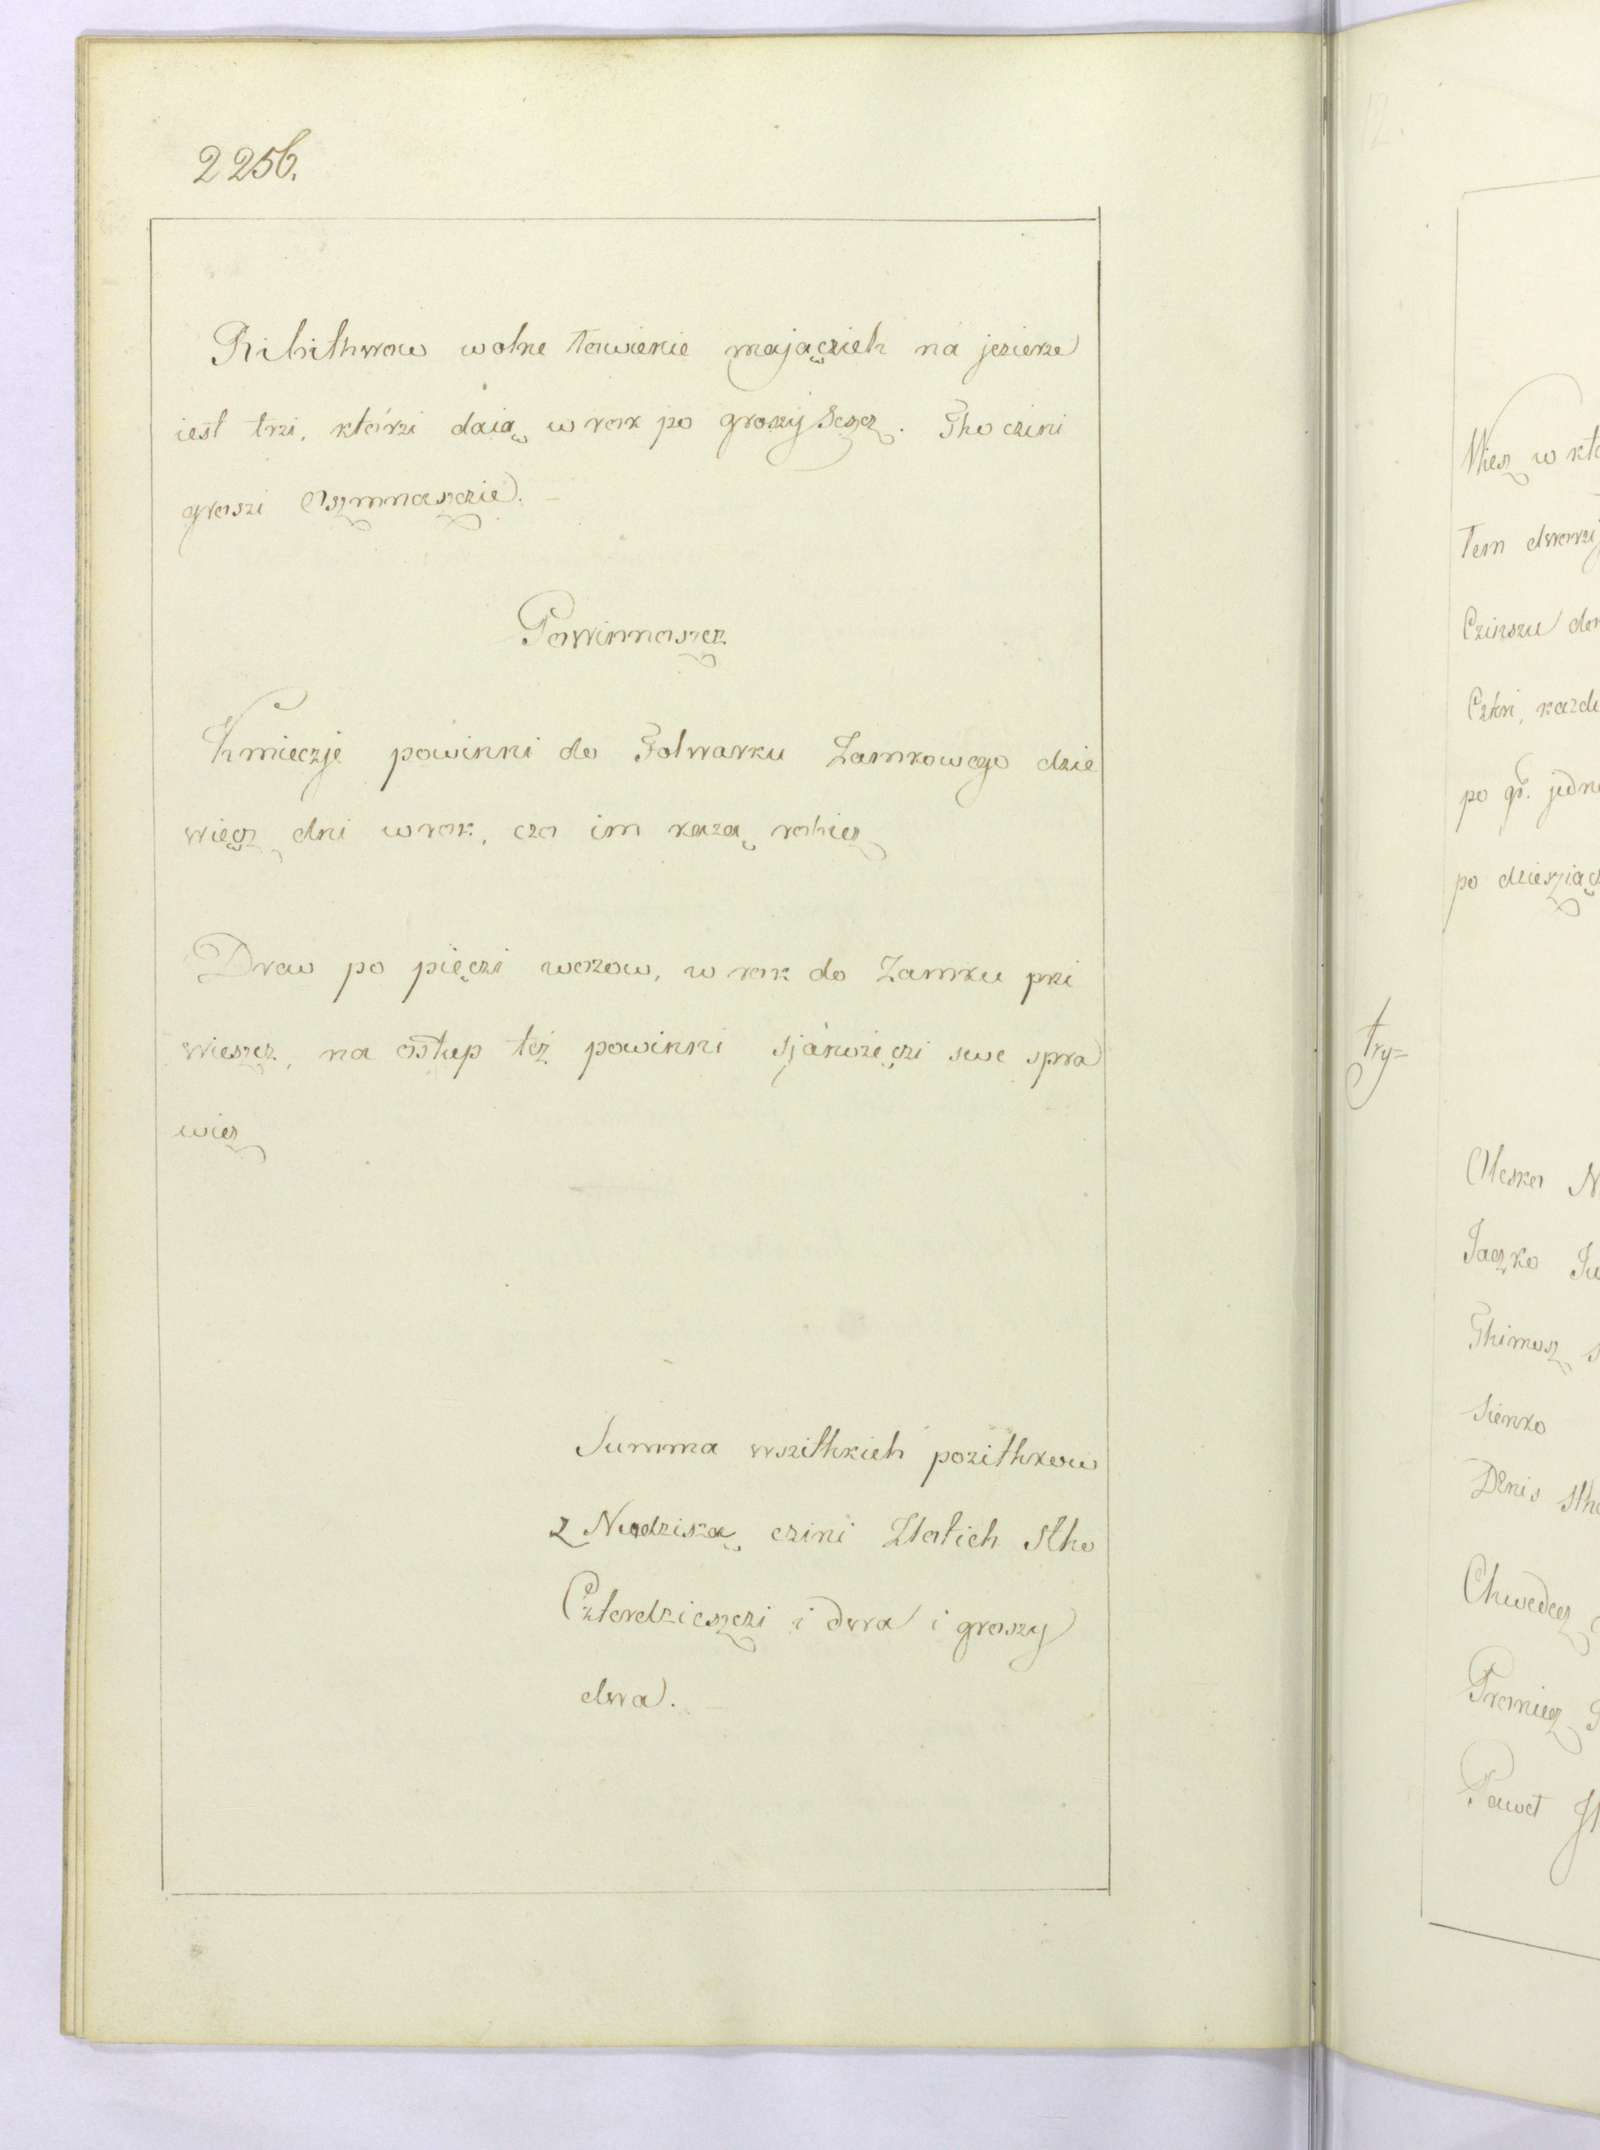 2256.
Ribithwow wolne łowienie majączich na jezierze
iest trzi, którzi daią w rok po groszy Sescz. Tho czini
groszi Oszmnaszczie.
Powinnoszcz
Kmieczje powinni do Folwarku Zamkowego dzie
więcz dni w rok, czo im każą robicz
Drew po pięczi wozow, w rok do Zamku przi
wieszcz, na ostup też powinni sjanożęczi swe spra
wicz
Summa wszithkich pozithkow
z Nudziską czini Złotich Stho
Czterdzieszczi i dwa i groszy
dwa.
Miesz w kt
Tem dworzi
Czinszu do
Czkni, kazd
po gr. jedn
po dziesziącz
try=
Olesko N
Jaczko Iu
Thimosz S
Sienko
Denis Stho
Chwedecz
Proniecz
Paweł